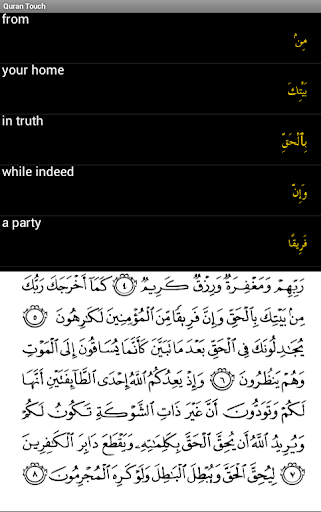 Quran Touch
from
مِنۢ
your home
بَيْتِكَ
in truth
بِٱلْحَقِّ
while indeed
وَإِنَّ
a party
فَرِيقًا
رَبِّهِمْ وَمَغْفِرَةٌ وَرِزْقٌ كَرِيمٌ ٤ كَمَآ أَخْرَجَكَ رَبُّكَ
مِنۢ بَيْتِكَ بِٱلْحَقِّ وَإِنَّ فَرِيقًا مِّنَ ٱلْمُؤْمِنِينَ لَكَٰرِهُونَ ٥
يُجَٰدِلُونَكَ فِى ٱلْحَقِّ بَعْدَ مَا تَبَيَّنَ كَأَنَّمَا يُسَاقُونَ إِلَى ٱلْمَوْتِ
وَهُمْ يَنظُرُونَ ٦ وَإِذْ يَعِدُكُمُ ٱللَّهُ إِحْدَى ٱلطَّآئِفَتَيْنِ أَنَّهَا
لَكُمْ وَتَوَدُّونَ أَنَّ غَيْرَ ذَاتِ ٱلشَّوْكَةِ تَكُونُ لَكُمْ
وَيُرِيدُ ٱللَّهُ أَن يُحِقَّ ٱلْحَقَّ بِكَلِمَٰتِهِۦ وَيَقْطَعَ دَابِرَ ٱلْكَٰفِرِينَ
٧ لِيُحِقَّ ٱلْحَقَّ وَيُبْطِلَ ٱلْبَٰطِلَ وَلَوْ كَرِهَ ٱلْمُجْرِمُونَ ٨